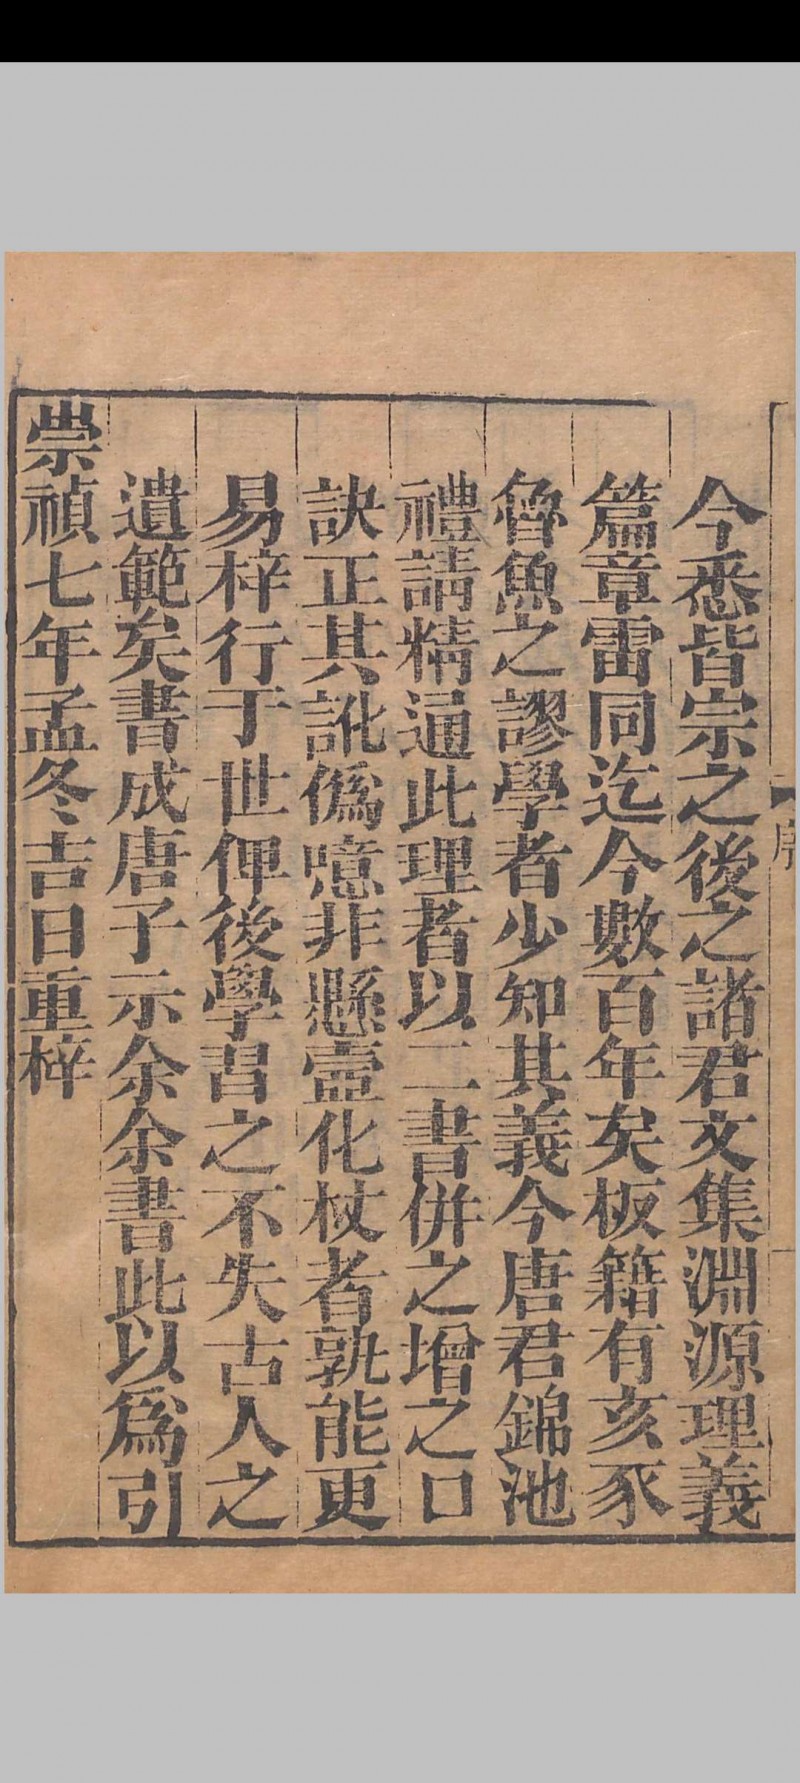 今悉皆宗之後之諸君文集淵源理義
篇章雷同迄今數百年矣板籍有亥豕
魯魚之謬學者少知其義今唐君錦池
禮請精通此理者以二書併之增之口
訣正其訛僞噫非懸壺化杖者孰能更
易梓行于世俾後學習之不失古人之
遺範矣書成唐子示余余書此以爲引
崇禎七年孟冬吉日重梓
序